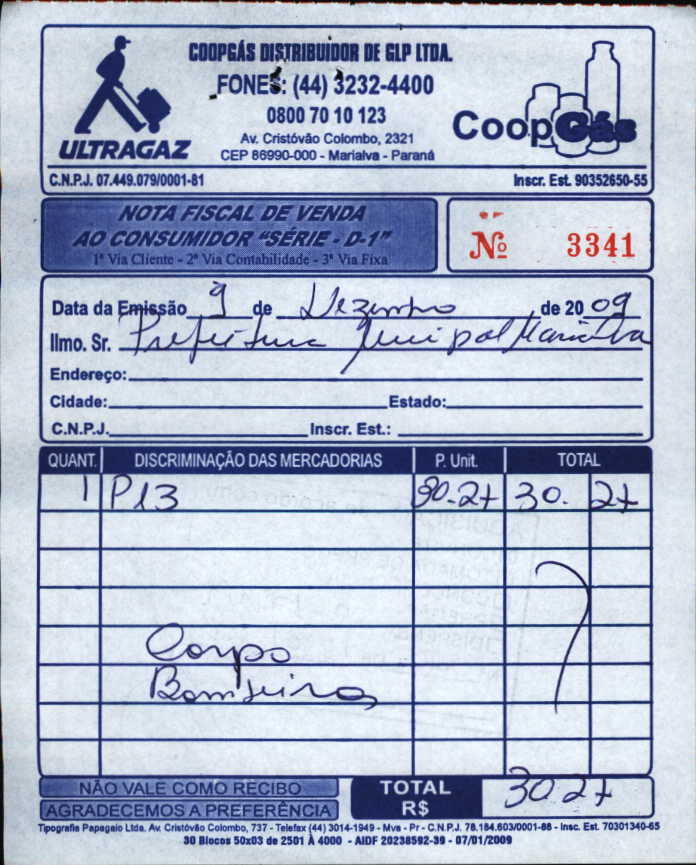 COOPGÁS DISTRIBUIDOR DE GLP LTDA.
FONES: (44) 3232-4400
0800 70 10 123
Av. Cristóvão Colombo, 2321
CEP 86990-000 - Marialva - Paraná
ULTRAGAZ
CoopGás
C.N.P.J. 07.449.079/0001-81
Inscr. Est. 90352650-55
NOTA FISCAL DE VENDA
AO CONSUMIDOR "SÉRIE - D-1"
1ª Via Cliente - 2ª Via Contabilidade - 3ª Via Fixa
Nº 3341
Data da Emissão 9 de Dezembro de 2009
Ilmo. Sr. Prefeitura Municipal Marialva
Endereço:
Cidade: Estado:
C.N.P.J. Inscr. Est.:
QUANT. DISCRIMINAÇÃO DAS MERCADORIAS P. Unit. TOTAL
1 P13 30.27 30. 27
Corpo
Bombeiros
NÃO VALE COMO RECIBO
AGRADECEMOS A PREFERÊNCIA
TOTAL R$ 30.27
Tipografia Papagaio Ltda. Av. Cristóvão Colombo, 737 - Telefax (44) 3014-1949 - Mva - Pr - C.N.P.J. 78.184.603/0001-88 - Insc. Est. 70301340-65
30 Blocos 50x03 de 2501 À 4000 - AIDF 20238592-39 - 07/01/2009